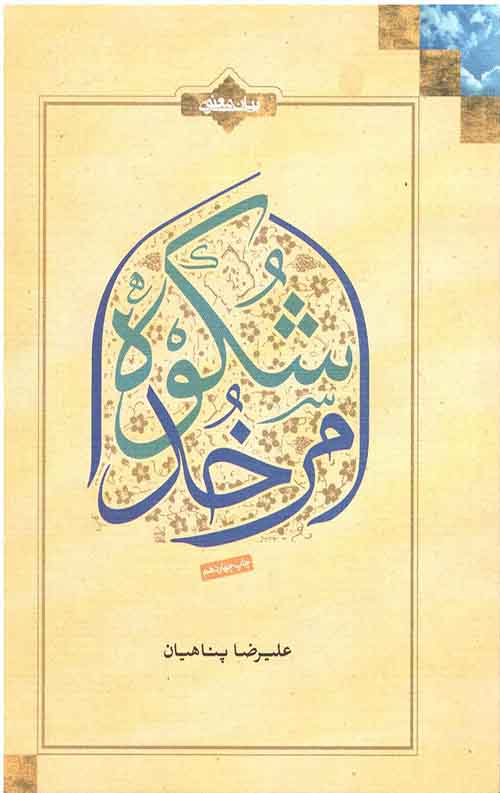 بیان معنوی
شکوه
امر خدا
چاپ چهاردهم
علیرضا پناهیان